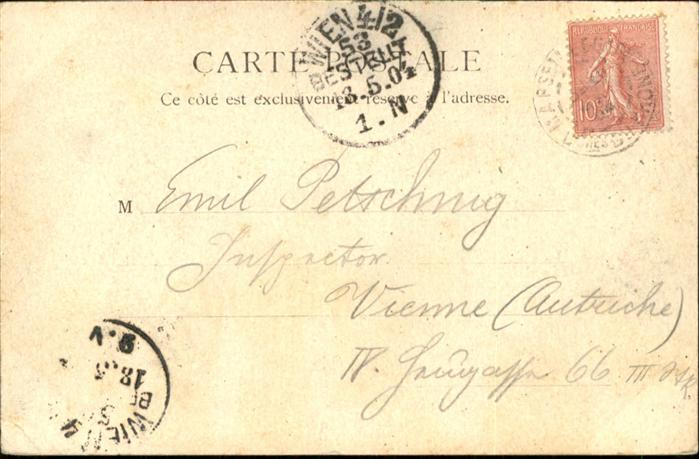 CARTE POSTALE
Ce côté est exclusivement réservé à l'adresse.
WIEN 4/2
53
BESTELLT
18.5.04
1.N
REPUBLIQUE FRANÇAISE
10
M Emil Petschnig
Inspector
Vienne (Autriche)
IV. 66 III
9.V
18.5
WIEN 4